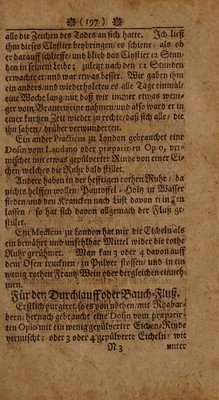 ❀ (197) ❀
alle die Zeichen des Todes an sich hatte. Ich ließ
ihm dieses Clystier beybringen/ es schiene/ als ob
er darauff schlieffe/ und blieb das Clystier 12 Stun-
den in seinem Leibe; zuletzt nach den 12 Stunden
erwachte er/ und war etwas besser. Wir gaben ihm
ein anders/ und wiederholeten es alle Tage einmal/
eine Woche lang/ nur daß wir immer etwas weni-
ger vom Brantewein nahmen/ und also ward er in
einer kurtzen Zeit wieder zu rechte/ daß sich alle/ die
ihn sahen/ drüber verwunderten.
Ein ander Practicus zu London gebrauchet eine
Dosin vom Laudano oder præparirten Opio, ver-
mischet mit etwas gepülverter Rinde von einer Ei-
chen/ welches die Ruhr bald stillet.
Andere haben in der hefftigen rothen Ruhr/ da
nichts helffen wollen/ Pantoffel-Holtz in Wasser
sieden/ und den Krancken nach Lust davon trincken
lassen/ so hat sich davon allgemach der Fluß ge-
stillet.
Ein Medicus zu London hat mir die Eicheln als
ein bewährt und unfehlbar Mittel wider die rothe
Ruhr gerühmet. Man kan 3 oder 4 davon auff
dem Ofen trucknen/ zu Pulver stossen/ und in ein
wenig rothen Frantz-Wein oder dergleichen einneh-
men.
Für den Durchlauff oder Bauch-Fluß.
Erstlich purgiret, so es von nöthen/ mit Rhabar-
barn/ hernach gebraucht eine Dosin vom præparir-
ten Opio mit ein wenig gepülverter Eichen-Rinde
vermischt; oder 3 oder 4 gepülverte Eicheln/ wie
N 3 unter